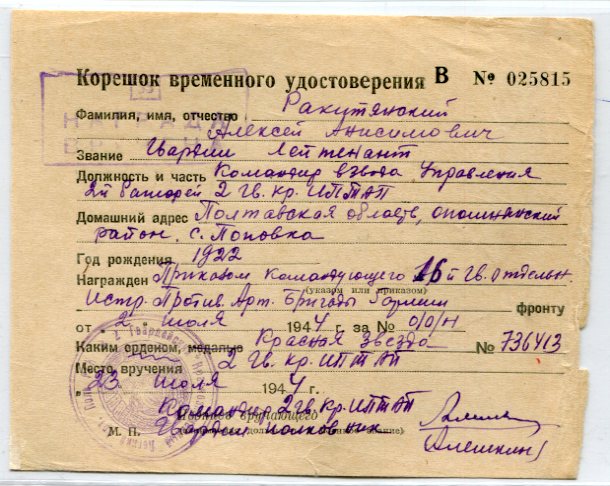 Корешок временного удостоверения В № 025815
Фамилия, имя, отчество Ракутянский
Алексей Анисимович
НАГРАДА
Звание Гвардии Лейтенант
Должность и часть Командир взвода Управления
2й батареи 2 гв. кр. ИПТАП
Домашний адрес Полтавская область, опошнянский
район, с. Поповка
Год рождения 1922
Награжден Приказом Командующего 16й гв. отдельн
(указом или приказом)
Истр. Против. Арт. Бригады фронту
от „2“ июля 1944 г. за № 0/0/н
Каким орденом, медалью Красная звезда № 736413
Место вручения 2 гв. кр. ИПТАП
„23“ июля 1944 г.
Командир 2 гв. кр. ИПТАП
Гвардии полковник
Алешкин
М. П.